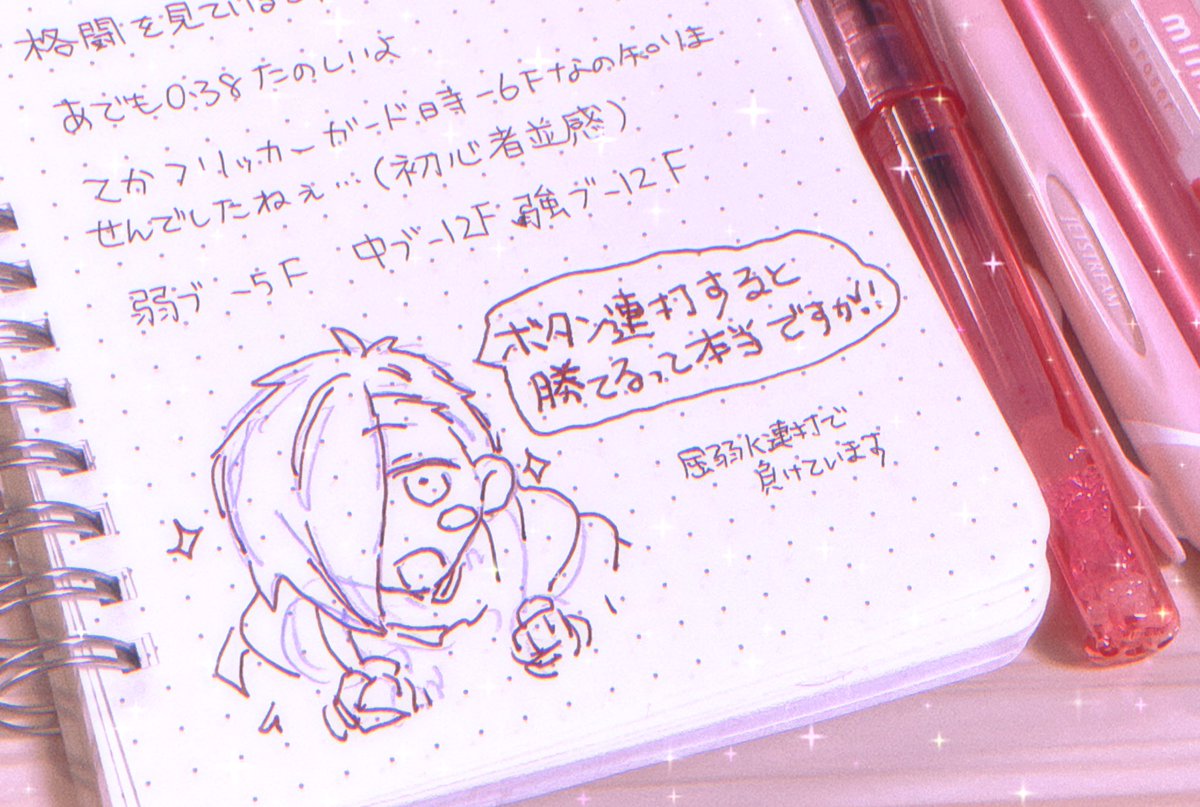 格闘を見ている
あでも0.38たのしいよ
てかフリッカーガード時-6Fなの知りま
せんでしたねぇ…(初心者並感)
弱ブ-5F 中ブ-12F 強ブ-12F
ボタン連打すると
勝てるって本当ですか!!
屈弱K連打で
負けています
JETSTREAM